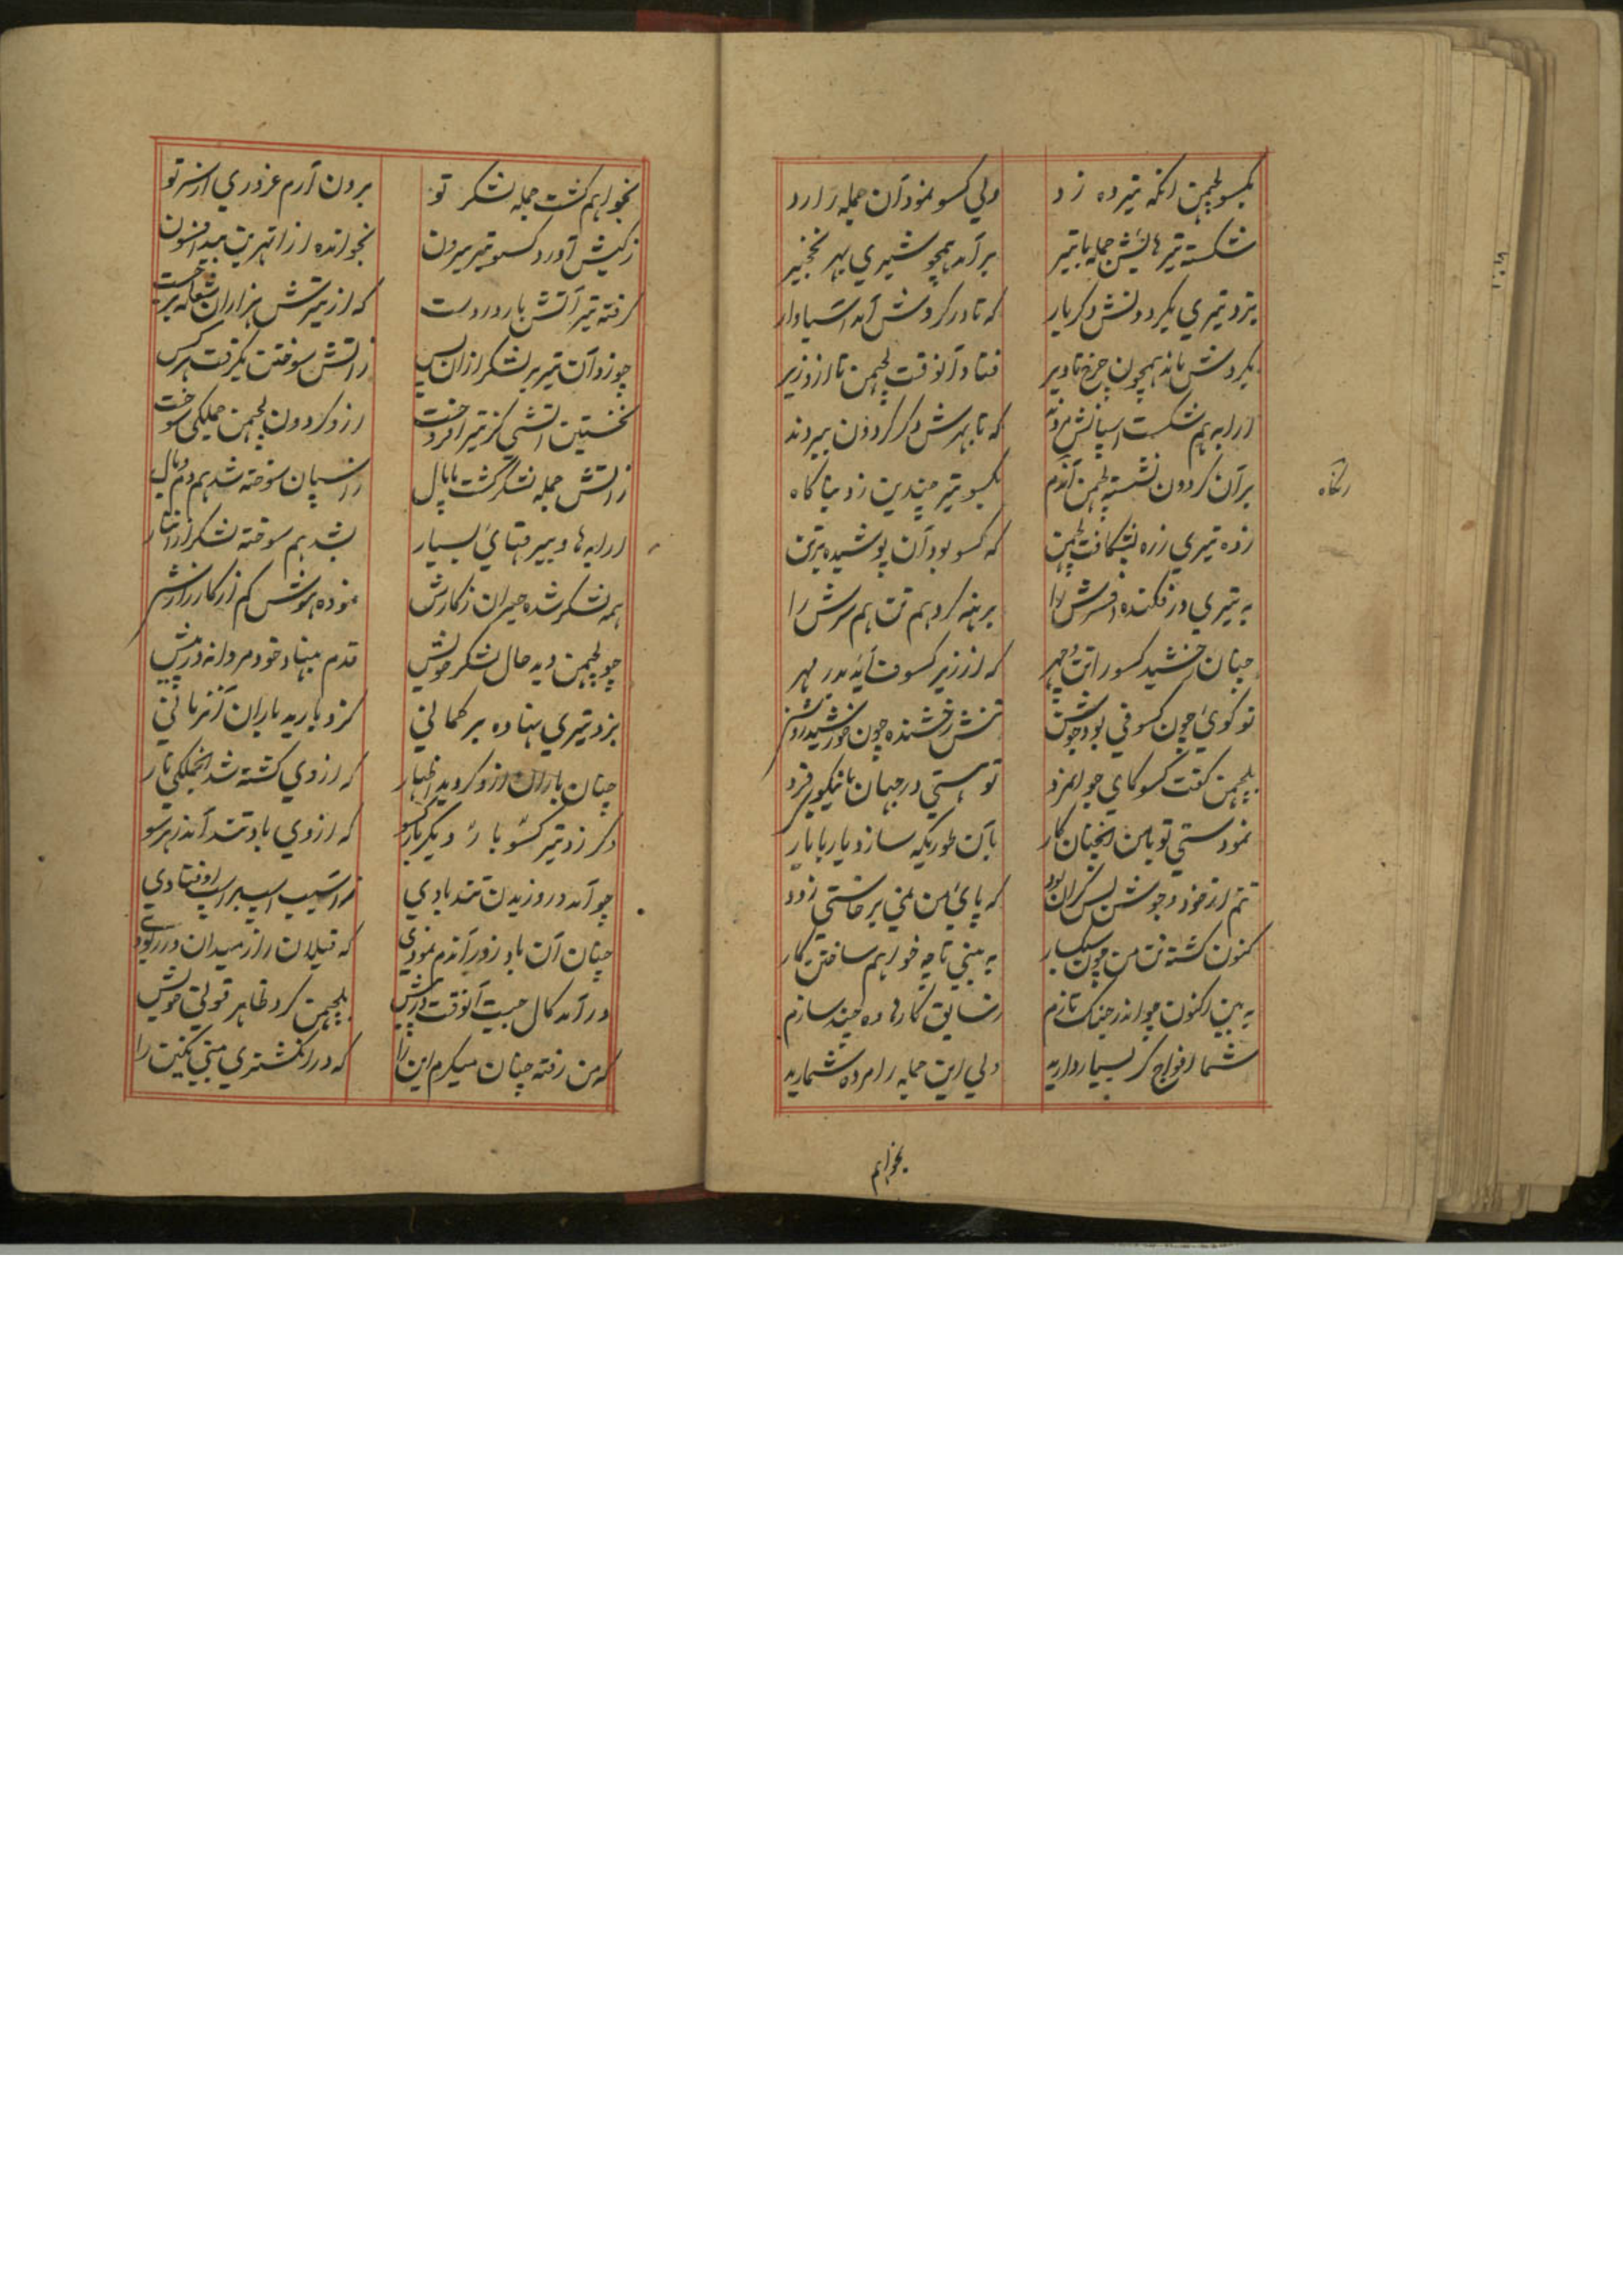 بکسو لچمن انکه تیر ده زد ولی کسو نمود آن جمله را رد
شکسته تیر هایش جمله با تیر برآمد همچو شیری بهر نخچیر
بزد تیری بگردونش دکر بار که تا در کردش آمد آسیاوار
بگردش ماند همچون چرخ تا دیر فتاد آنوقت لچمن تا ازو زیر
ارابه هم شکست اسپانش مردند که تا بهرش دکر کردون ببردند
برآن کردون نشسته لچمن آندم بکسو تیر چندین زد بناکاه
آنکاه
زده تیری زره بشکافت لچمن که کسو بود آن پوشیده بر تن
به تیری در فکنده افسرش را برهنه کرد هم تن هم سرش را
چنان رخشید کسو را تن و چهر که از زیر کسوف آید بدر مهر
تو کوئی چون کسوفی بود جوشن تنش رخشنده چون خورشید روشن
بلچمن کفت کسو کای جوانمرد تو هستی در جهان با نیکویی فرد
نمودستی تو با من انچنان کار بآن طوریکه سازد یار با یار
تنم از خود و جوشن بس گران بود که پای من نمی برخاستی زود
کنون کشته تن من چون سبکبار به بینی تا چه خواهم ساختن کار
به بین اکنون چو اندر جنک تازم شقایق کارها ده چند سازم
شما افواج کر بسیار دارید ولی این جمله را مرده شمارید
بخواهم
بخواهم کشت جمله لشکر تو برون آرم غروری از سر تو
زکیش آورد کسو تیر بیرون بخوانده از اتهربن بید افسون
کرفته تیر آتش بار در دست که از تیرش هزاران شعله برجست
چو زد آن تیر بر لشکر ازان پس ز آتش سوختن بکرفت هر کس
نخستین آتشی کز تیر افروخت ازو کردون لچمن جملکی سوخت
ز آتش جمله لشکر کشت پامال ز اسپان سوخته شد هم دم و یال
ارابه ها و بیرقهای بسیار بشد هم سوخته لشکر ازان نار
همه لشکر شده حیران ز کارش نموده هوش کم از کارزارش
چو لچمن دید حال لشکر خویش قدم بنهاد خود مردانه در پیش
بزد تیری نهاده بر کمانی کزو بارید باران آنزمانی
چنان باران ازو کردید اظهار که از وی کشته شد آنجملکی نار
دکر زد تیر کسو باز دیکر بارکسو که از وی باد تند آمد ز هر سو
چو آمد در وزیدن تند بادی ز آسیب اسپ بر اسپ اوفتادی
چنان آن باد زور آندم نمودی که فیلان را ز میدان در ربودی
درآمد کال جیت آنوقت در پیش بلچمن کرد ظاهر قولی خویش
که من رفته چنان میکرم این را که در انکشتری بینی نکین را